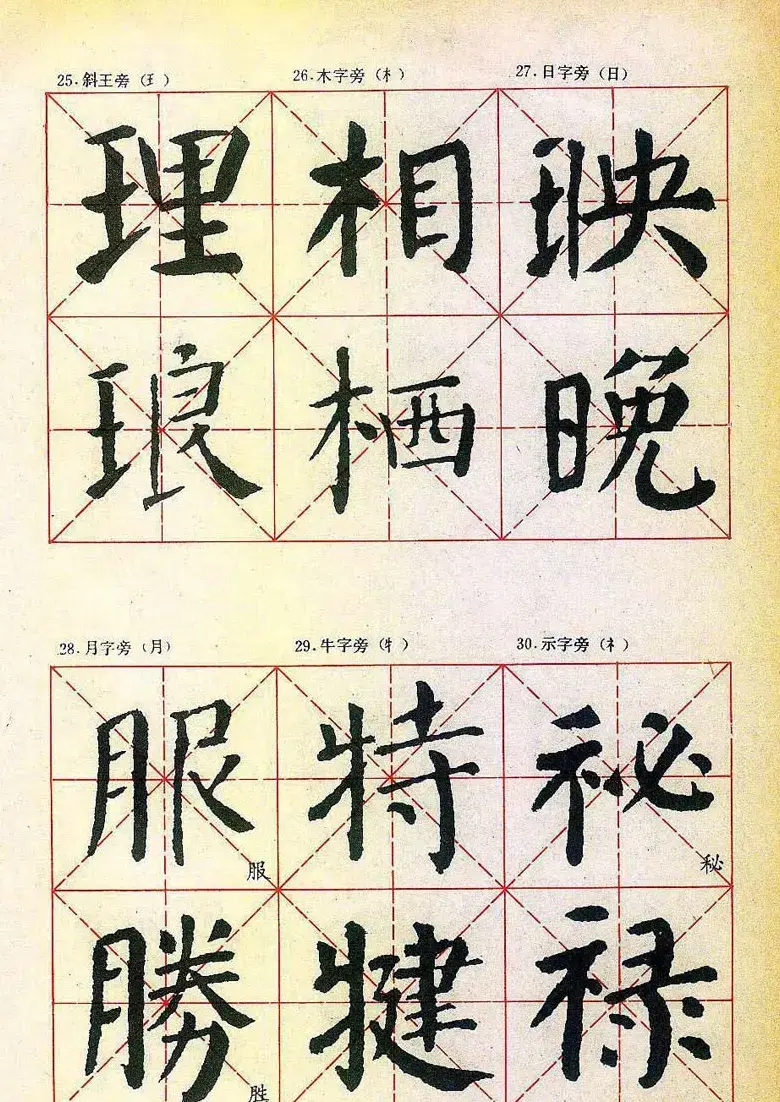 25.斜王旁（𤣩） 26.木字旁（木） 27.日字旁（日）
理 相 映
琅 栖 晚
28.月字旁（月） 29.牛字旁（牜） 30.示字旁（礻）
服 特 祕
服 秘
勝 犍 禄
胜